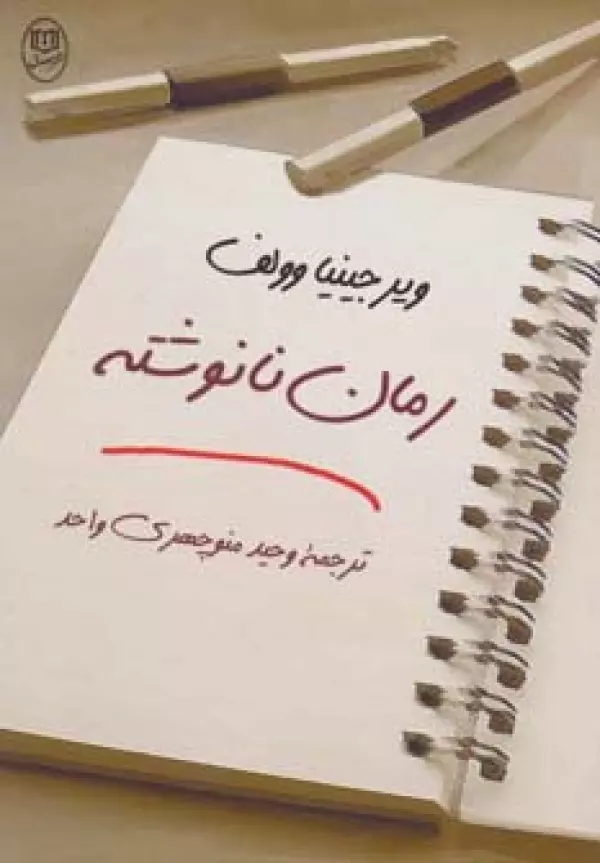 ویرجینیا وولف
رمان نانوشته
ترجمهٔ وحید منوچهری واحد